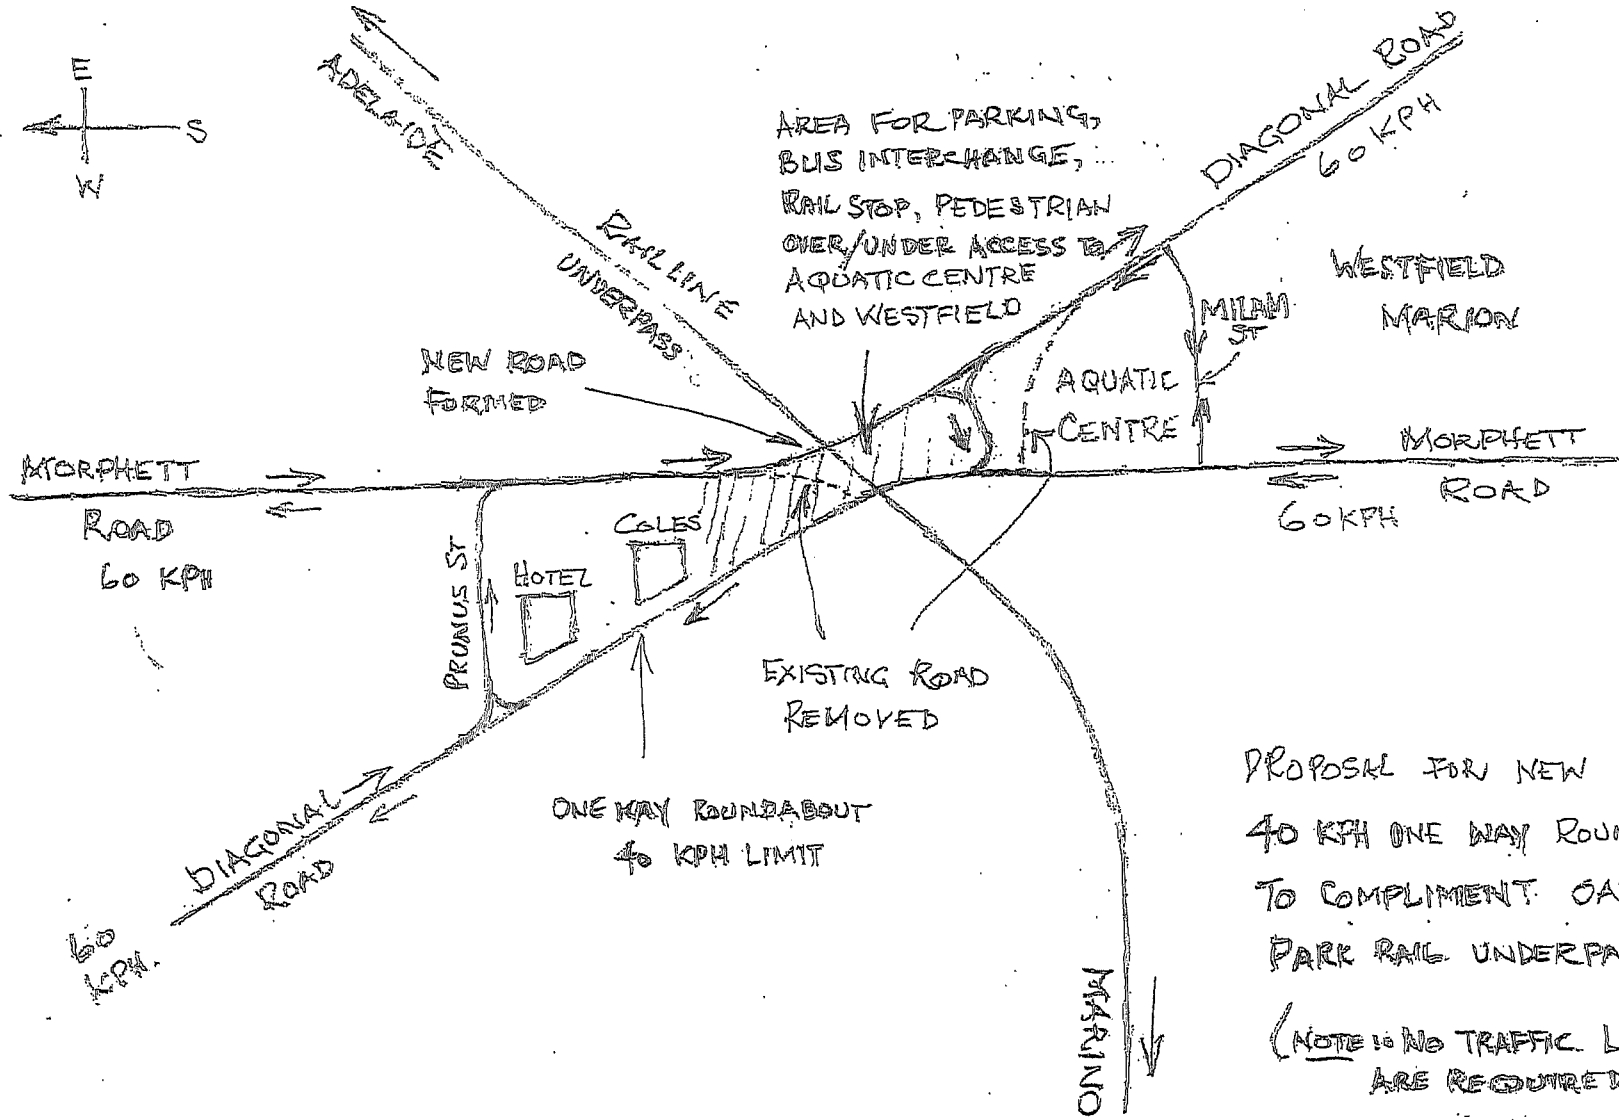 E
S
W
ADELAIDE
RAIL LINE
UNDERPASS
AREA FOR PARKING,
BUS INTERCHANGE,
RAIL STOP, PEDESTRIAN
OVER/UNDER ACCESS TO
AQUATIC CENTRE
AND WESTFIELD
DIAGONAL ROAD
60 KPH
WESTFIELD
MARION
MILAM
ST
NEW ROAD
FORMED
AQUATIC
CENTRE
MORPHETT
ROAD
60 KPH
MORPHETT
ROAD
60 KPH
COLES
HOTEL
PRUNUS ST
EXISTING ROAD
REMOVED
ONE WAY ROUNDABOUT
40 KPH LIMIT
DIAGONAL
ROAD
60
KPH.
MARINO
PROPOSAL FOR NEW
40 KPH ONE WAY ROU
TO COMPLIMENT OA
PARK RAIL UNDERPA
(NOTE: NO TRAFFIC L
ARE REQUIRED